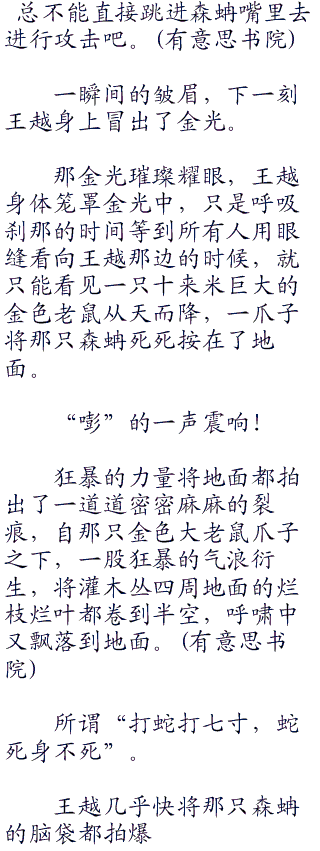 总不能直接跳进森蚺嘴里去
进行攻击吧。(有意思书院)
一瞬间的皱眉，下一刻
王越身上冒出了金光。
那金光璀璨耀眼，王越
身体笼罩金光中，只是呼吸
刹那的时间等到所有人用眼
缝看向王越那边的时候，就
只能看见一只十来米巨大的
金色老鼠从天而降，一爪子
将那只森蚺死死按在了地
面。
“嘭”的一声震响！
狂暴的力量将地面都拍
出了一道道密密麻麻的裂
痕，自那只金色大老鼠爪子
之下，一股狂暴的气浪衍
生，将灌木丛四周地面的烂
枝烂叶都卷到半空，呼啸中
又飘落到地面。(有意思书
院)
所谓“打蛇打七寸，蛇
死身不死”。
王越几乎快将那只森蚺
的脑袋都拍爆